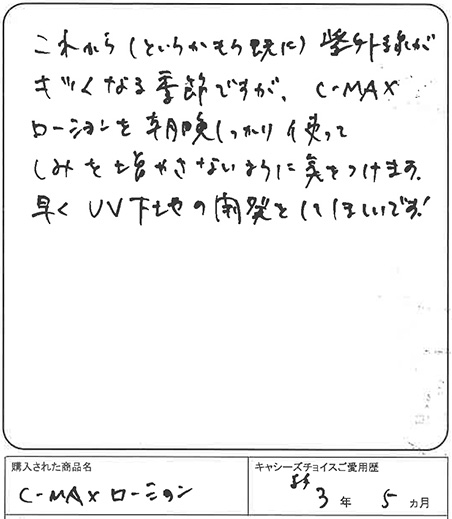 これから（というかもう既に）紫外線が
キツくなる季節ですが、C-MAX
ローションを朝晩しっかり使って
しみを増やさないように気をつけます。
早くUV下地の開発をしてほしいです!
購入された商品名
キャシーズチョイスご愛用歴
C-MAXローション
3年 5ヵ月